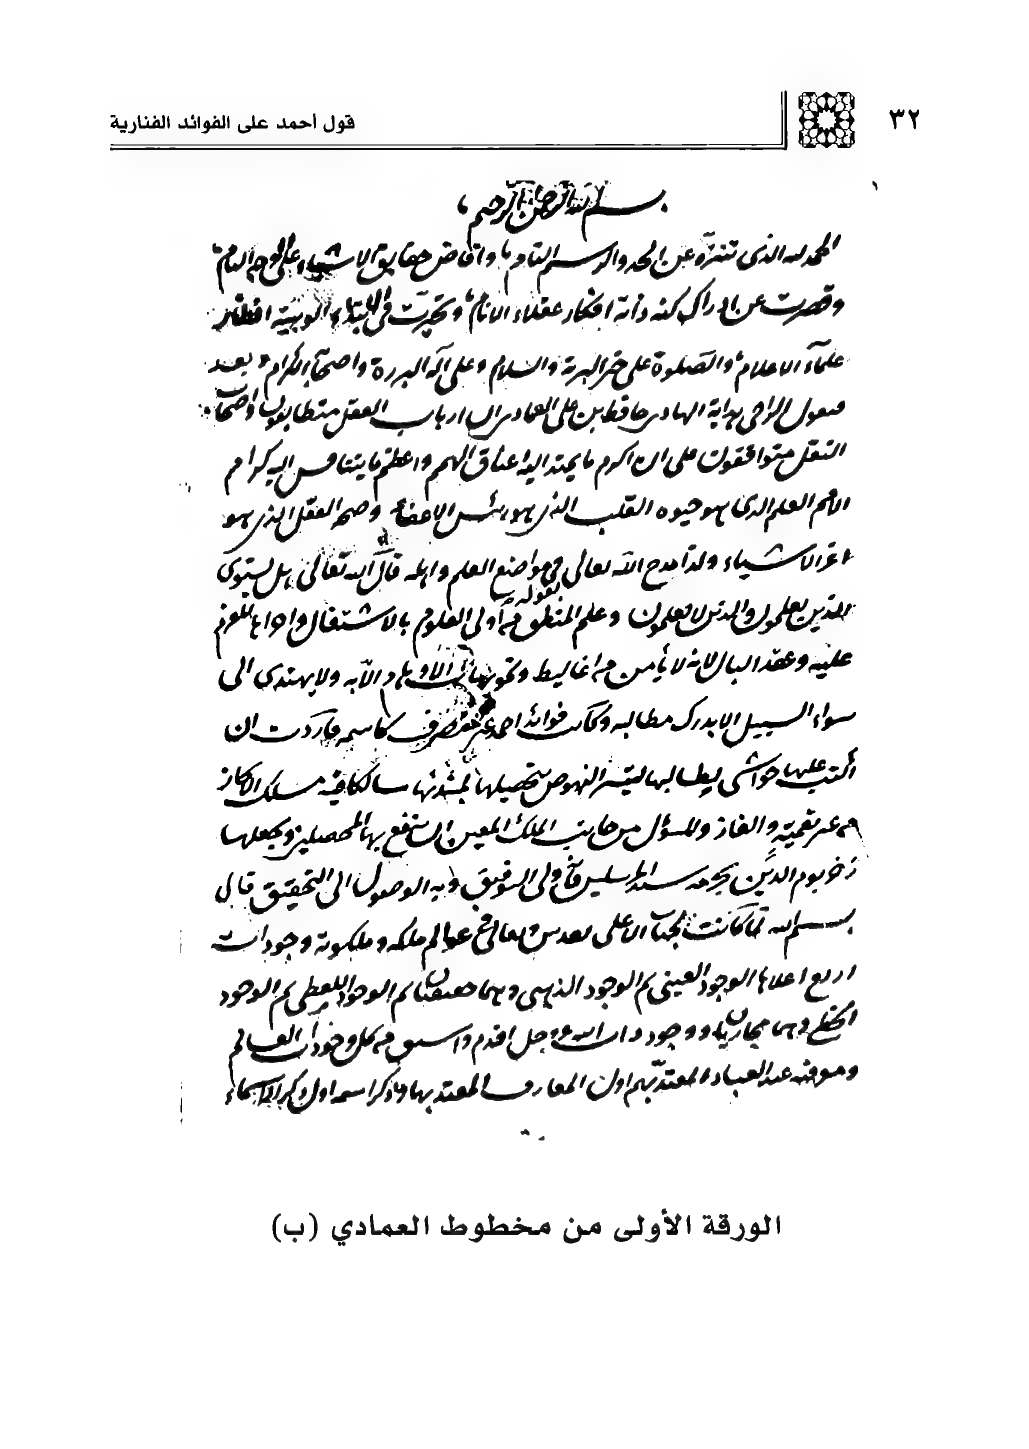 ٣٢
قول أحمد على الفوائد الفنارية
بسم الله الرحمن الرحيم
الحمد لله الذى تنزه عن الحد والرسم التام وافاض حقايق الاشياء على الوجه التام
وقصرت عن ادراك كنه ذاته افكار عقلاء الانام وتحيرت فى ابتداء الوهيته انظار
علماء الاعلام والصلوة على خير البرية والسلام وعلى آله البررة واصحابه الكرام وبعد
فيقول الراجى هداية الهادى حافظ بن على العمادى ان ارباب العقل متطابقون واصحاب
النقل متوافقون على ان اكرم ما يمتد اليه اعناق الهمم واعظم ما يتنافس اليه كرام
الامم العلم الذى هو حيوة القلب الذى هو رئيس الاعضاء وصحة العقل الذى هو
اعز الاشياء ولذا مدح الله تعالى فى مواضع العلم واهله قال الله تعالى هل يستوى
بقوله
الذين يعلمون والذين لا يعلمون وعلم المنطق من أولى العلوم بالاشتغال واحراها للعزم
عليه وعقد البال لانه لا يأمن من اغاليط وتمويهات الاوهام الا به ولا يهتدى الى
سواء السبيل الا بدرك مطالبه وكانت فوائد احمد غير منصرف كاسمه فاردت ان
اكتب عليها حواشى يطالبها لتيسر النهوض بتحصيلها لمبتدئها سالكا فيه مسلك الايجاز
من غير تعمية والغاز والمسؤل من جانب الملك المعين ان ينتفع بها المحصلين ويجعلها
ذخر يوم الدين بحرمة سيد المرسلين فانه ولى التوفيق وبه الوصول الى التحقيق قال
بسم الله لما كانت لجناب الاعلى تقدس وتعالى فى عوالم ملكه وملكوته وجودات
اربع اعلاها الوجود العينى ثم الوجود الذهنى وهما حقيقيان ثم الوجود اللفظى ثم الوجود
الخطى وهما مجازيان ووجود ذات الله عز وجل اقدم واسبق من كل وجودات العالم
ومعرفته عند العباد المعتد بهم اول المعارف المعتد بها وذكر اسمه اول ذكر الاسماء
الورقة الأولى من مخطوط العمادي (ب)